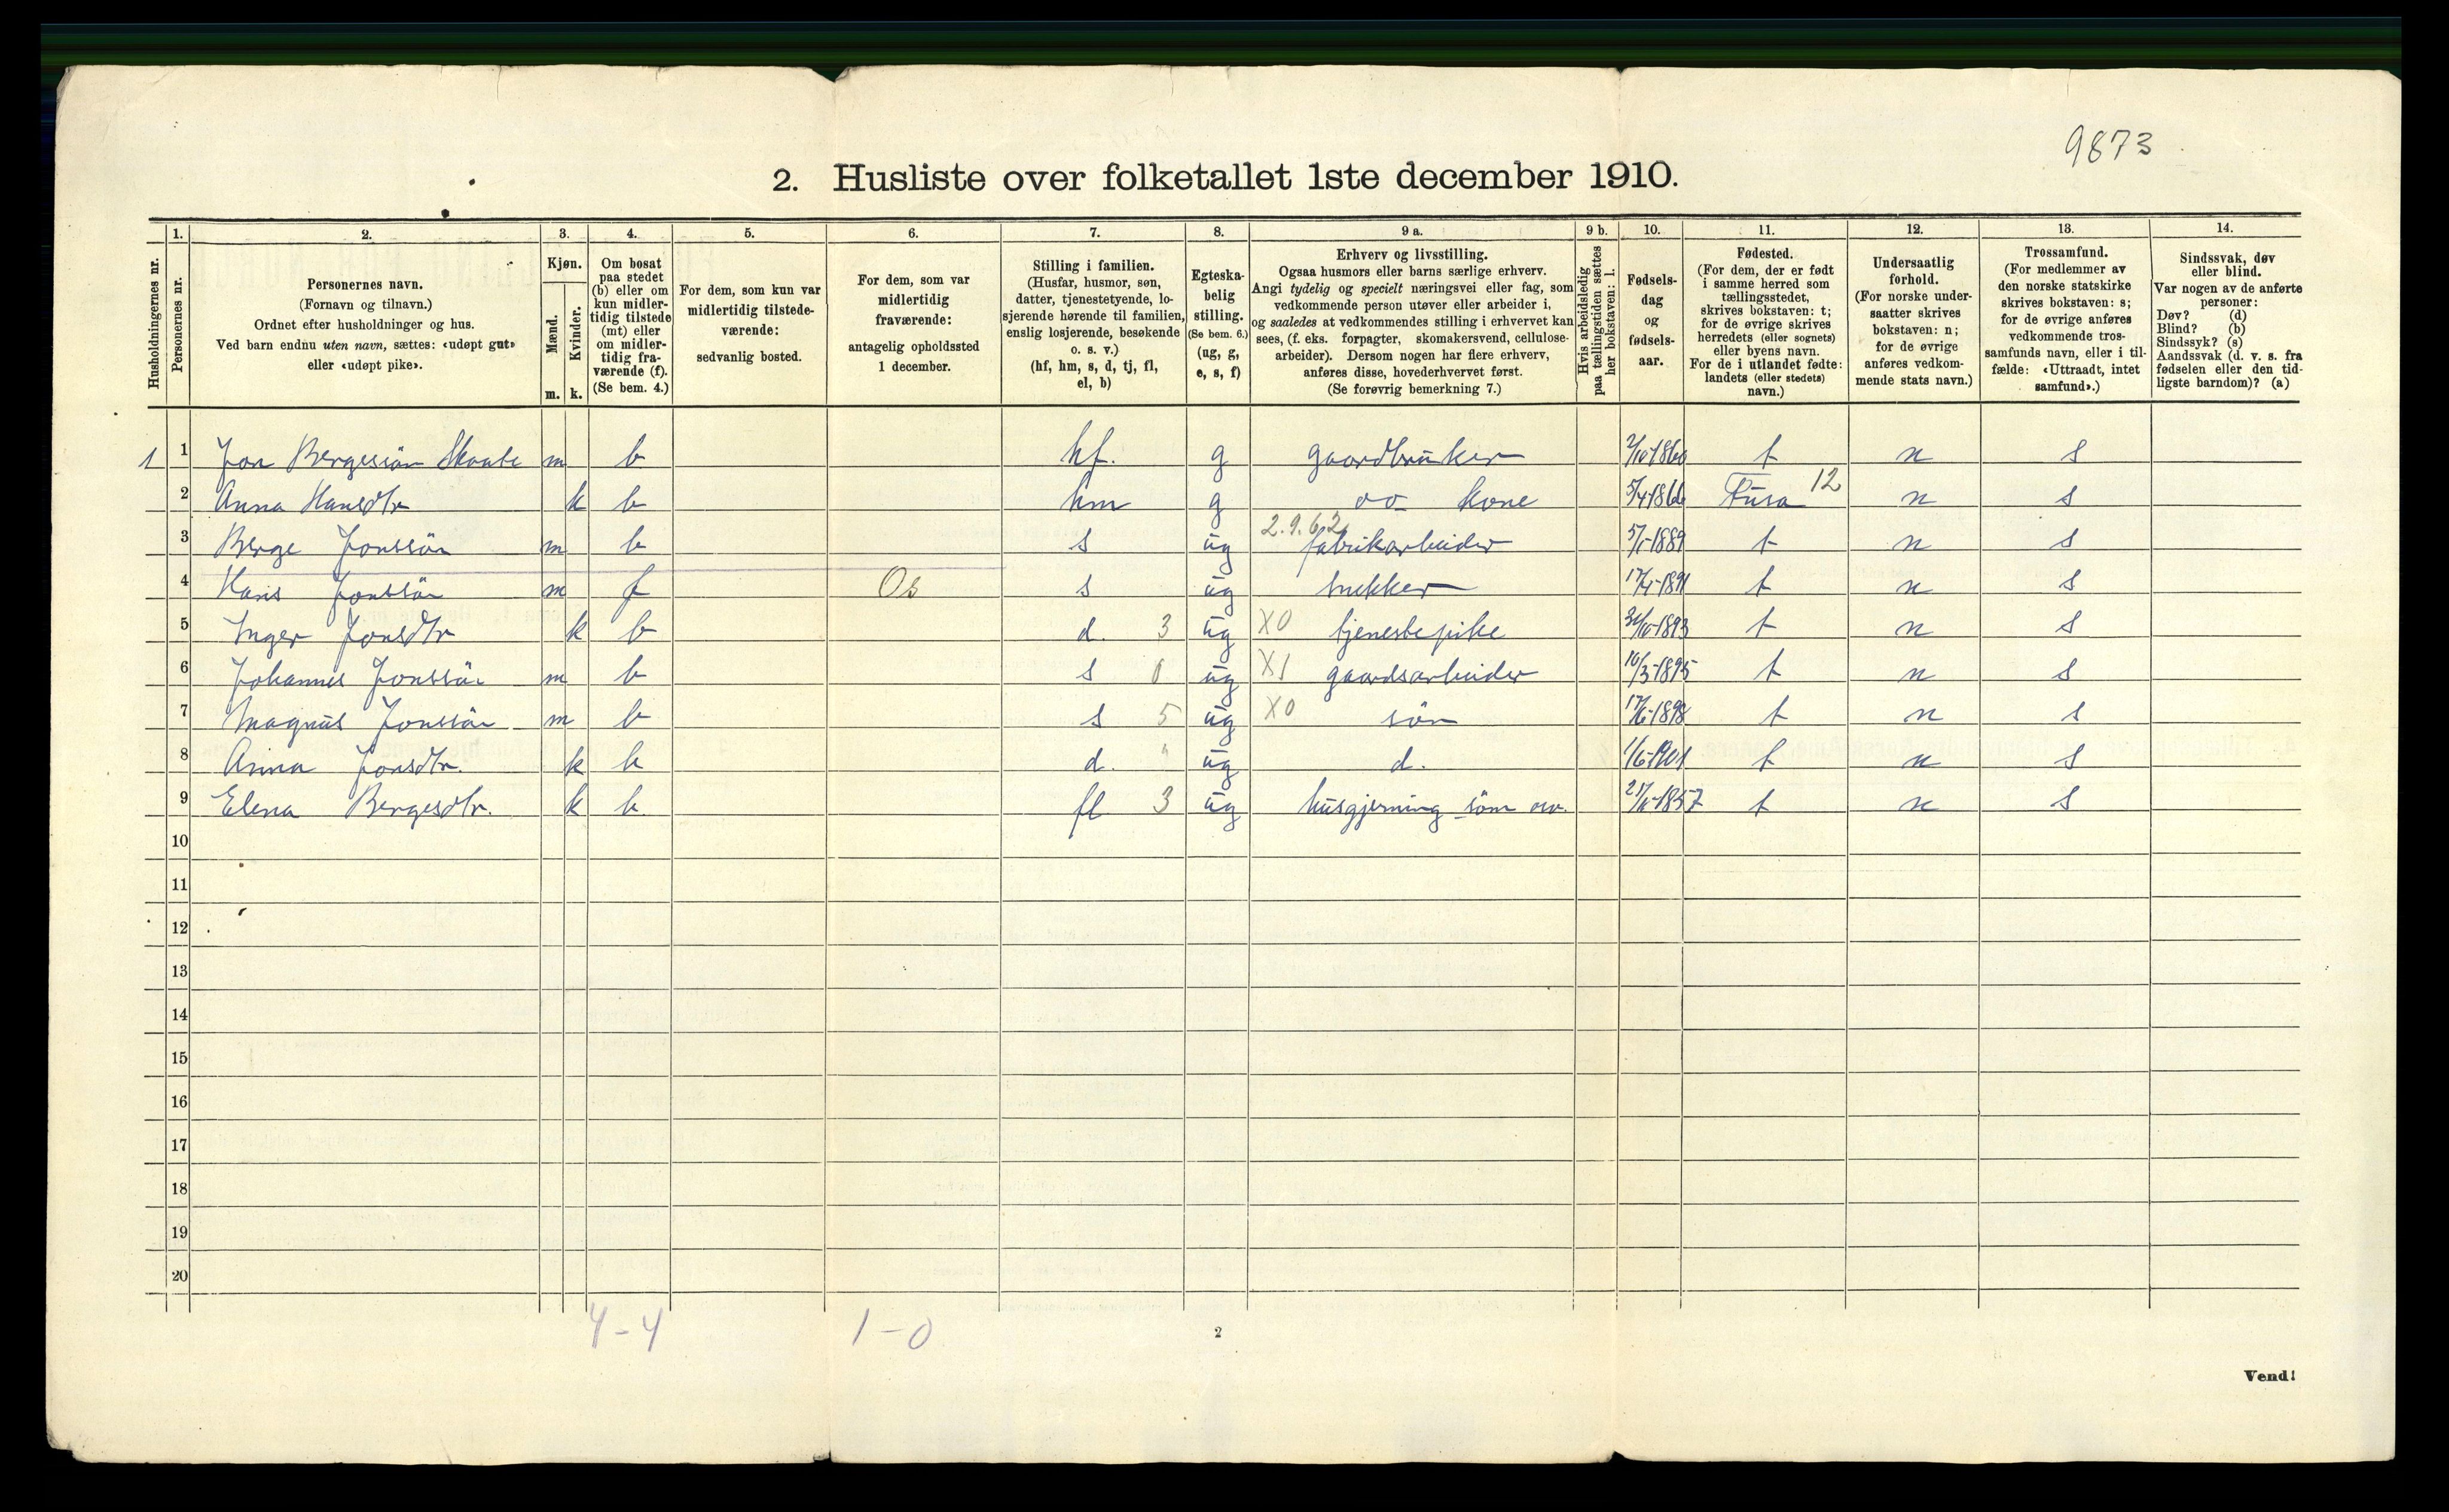 9873
2. Husliste over folketallet 1ste december 1910.
Husholdningernes nr.
1. Personernes nr.
2. Personernes navn.
(Fornavn og tilnavn.)
Ordnet efter husholdninger og hus.
Ved barn endnu uten navn, sættes: «udøpt gut»
eller «udøpt pike».
3. Kjøn.
Mænd. m.
Kvinder. k.
4. Om bosat
paa stedet
(b) eller om
kun midler-
tidig tilstede
(mt) eller
om midler-
tidig fra-
værende (f).
(Se bem. 4.)
5. For dem, som kun var
midlertidig tilstede-
værende:
sedvanlig bosted.
6. For dem, som var
midlertidig
fraværende:
antagelig opholdssted
1 december.
7. Stilling i familien.
(Husfar, husmor, søn,
datter, tjenestetyende, lo-
sjerende hørende til familien,
enslig losjerende, besøkende
o. s. v.)
(hf, hm, s, d, tj, fl,
el, b)
8. Egteska-
belig
stilling.
(Se bem. 6.)
(ug, g,
e, s, f)
9 a. Erhverv og livsstilling.
Ogsaa husmors eller barns særlige erhverv.
Angi tydelig og specielt næringsvei eller fag, som
vedkommende person utøver eller arbeider i,
og saaledes at vedkommendes stilling i erhvervet kan
sees, (f. eks. forpagter, skomakersvend, cellulose-
arbeider). Dersom nogen har flere erhverv,
anføres disse, hovederhvervet først.
(Se forøvrig bemerkning 7.)
9 b. Hvis arbeidsledig
paa tællingstiden sættes
her bokstaven: l.
10. Fødsels-
dag
og
fødsels-
aar.
11. Fødested.
(For dem, der er født
i samme herred som
tællingsstedet,
skrives bokstaven: t;
for de øvrige skrives
herredets (eller sognets)
eller byens navn.
For de i utlandet fødte:
landets (eller stedets)
navn.)
12. Undersaatlig
forhold.
(For norske under-
saatter skrives
bokstaven: n;
for de øvrige
anføres vedkom-
mende stats navn.)
13. Trossamfund.
(For medlemmer av
den norske statskirke
skrives bokstaven: s;
for de øvrige anføres
vedkommende tros-
samfunds navn, eller i til-
fælde: «Uttraadt, intet
samfund».)
14. Sindssvak, døv
eller blind.
Var nogen av de anførte
personer:
Døv? (d)
Blind? (b)
Sindssyk? (s)
Aandssvak (d. v. s. fra
fødselen eller den tid-
ligste barndom)? (a)
1 1 Jon Bergessön m b hf. g gaardbruker 2/10-1860 t n s
2 Anna Hansdtr k b hm g oo kone Fusa 12 n s
3 Berge Jonssön m b s ug 2.9.62 fabrikarbeider 5/1-1889 t n s
4 Hans Jonssön m f Os s ug snekker 17/4-1891 t n s
5 Inger Jonsdtr k b d. 3 ug X0 tjenestepike t n s
6 Johannes Jonssön m b s 0 ug X1 gaardsarbeider 10/3-1895 t n s
7 Magnus Jonssön m b s 5 ug X0 sön 17/6-1898 t n s
8 Anna Jonsdtr. k b d. ug d. 1/6-1901 t n s
9 Elena Bergesdtr. k b. fl 3 ug husgjerning söm osv. t n s
10
11
12
13
14
15
16
17
18
19
20
4-4 1-0
2
Vend!